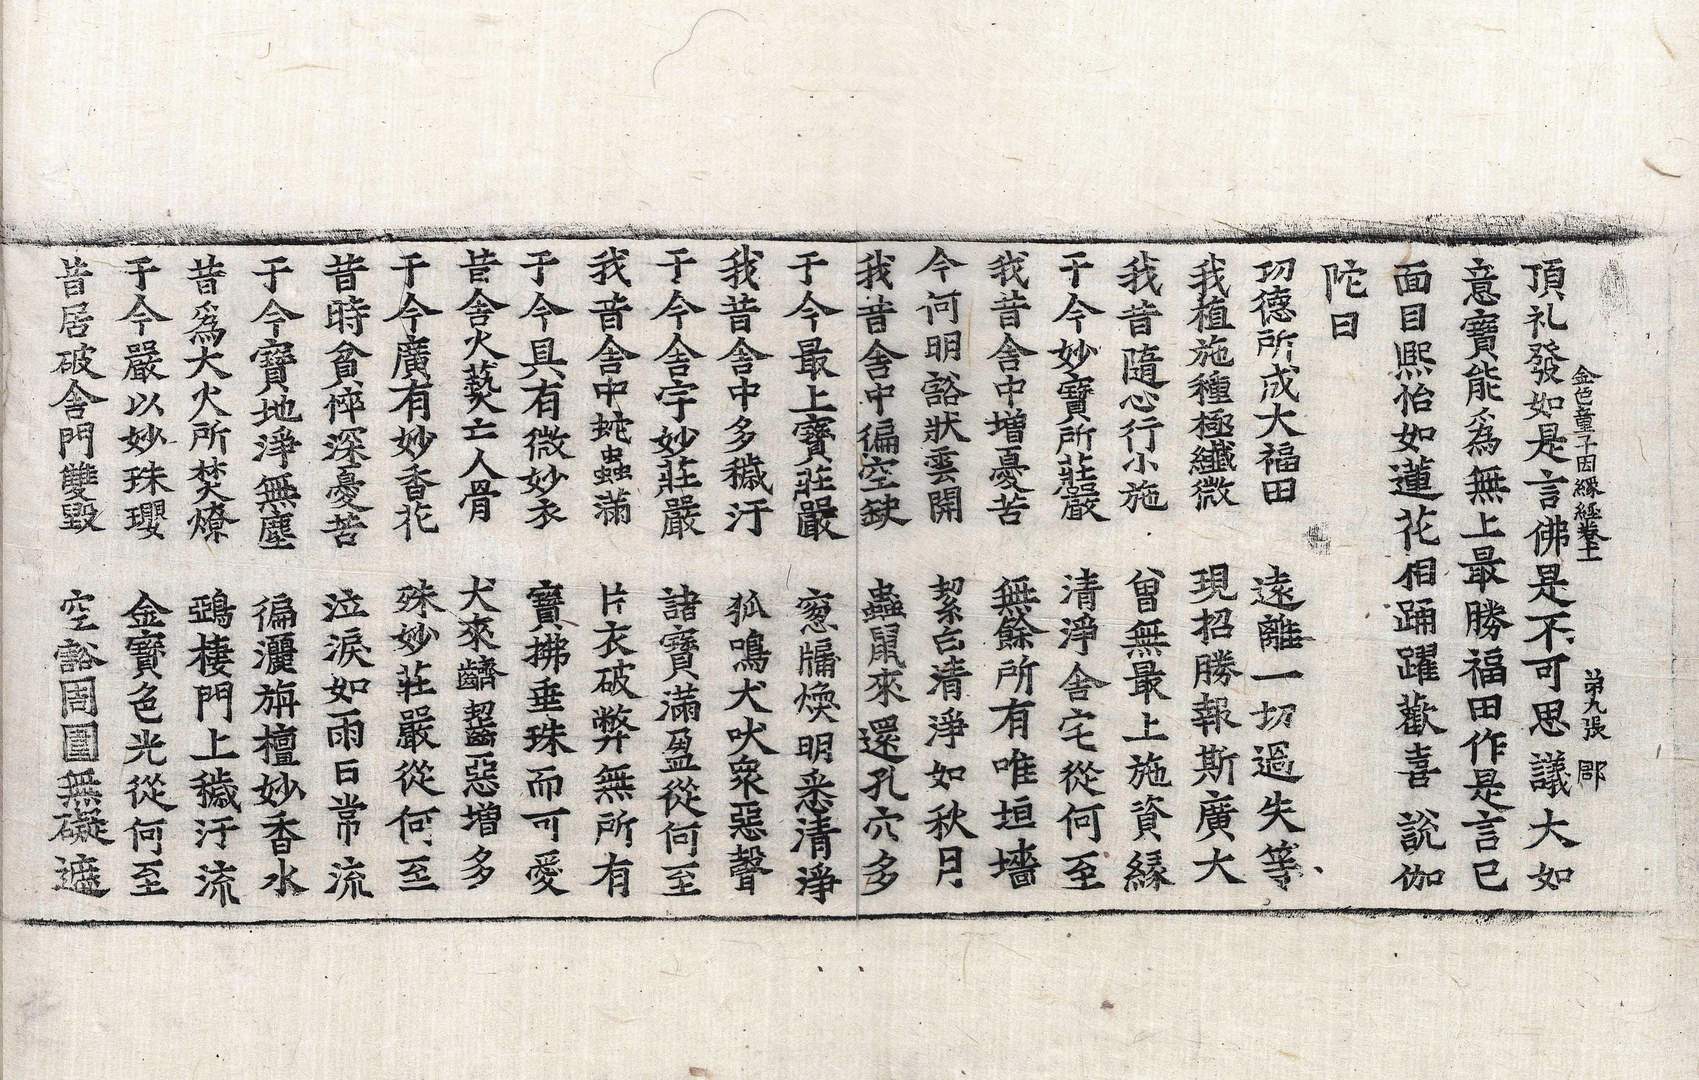 金色童子因緣經卷十一　第九張　郡
頂礼發如是言佛是不可思議大如
意寶能爲無上最勝福田作是言已
面目熙怡如蓮花相踊躍歡喜說伽
陀曰
功德所成大福田　遠離一切過失等
我植施種極纖微　現招勝報斯廣大
我昔隨心行小施　曾無最上施資緣
于今妙寶所莊嚴　清淨舍宅從何至
我昔舍中增憂苦　無餘所有唯垣墻
今何明豁狀雲開　絜白清淨如秋月
我昔舍中徧空缺　蟲鼠來還孔穴多
于今最上寶莊嚴　窓牖煥明悉清淨
我昔舍中多穢汙　狐鳴犬吠衆惡聲
于今舍宇妙莊嚴　諸寶滿盈從何至
我昔舍中蛇蟲滿　片衣破弊無所有
于今具有微妙衣　寶拂垂珠而可愛
昔舍火爇亡人骨　犬來齩齧惡增多
于今廣有妙香花　殊妙莊嚴從何至
昔時貧悴深憂苦　泣淚如雨日常流
于今寶地淨無塵　徧灑旃檀妙香水
昔爲大火所焚燎　鵶棲門上穢汙流
于今嚴以妙珠瓔　金寶色光從何至
昔居破舍門雙毀　空豁周圓無礙遮